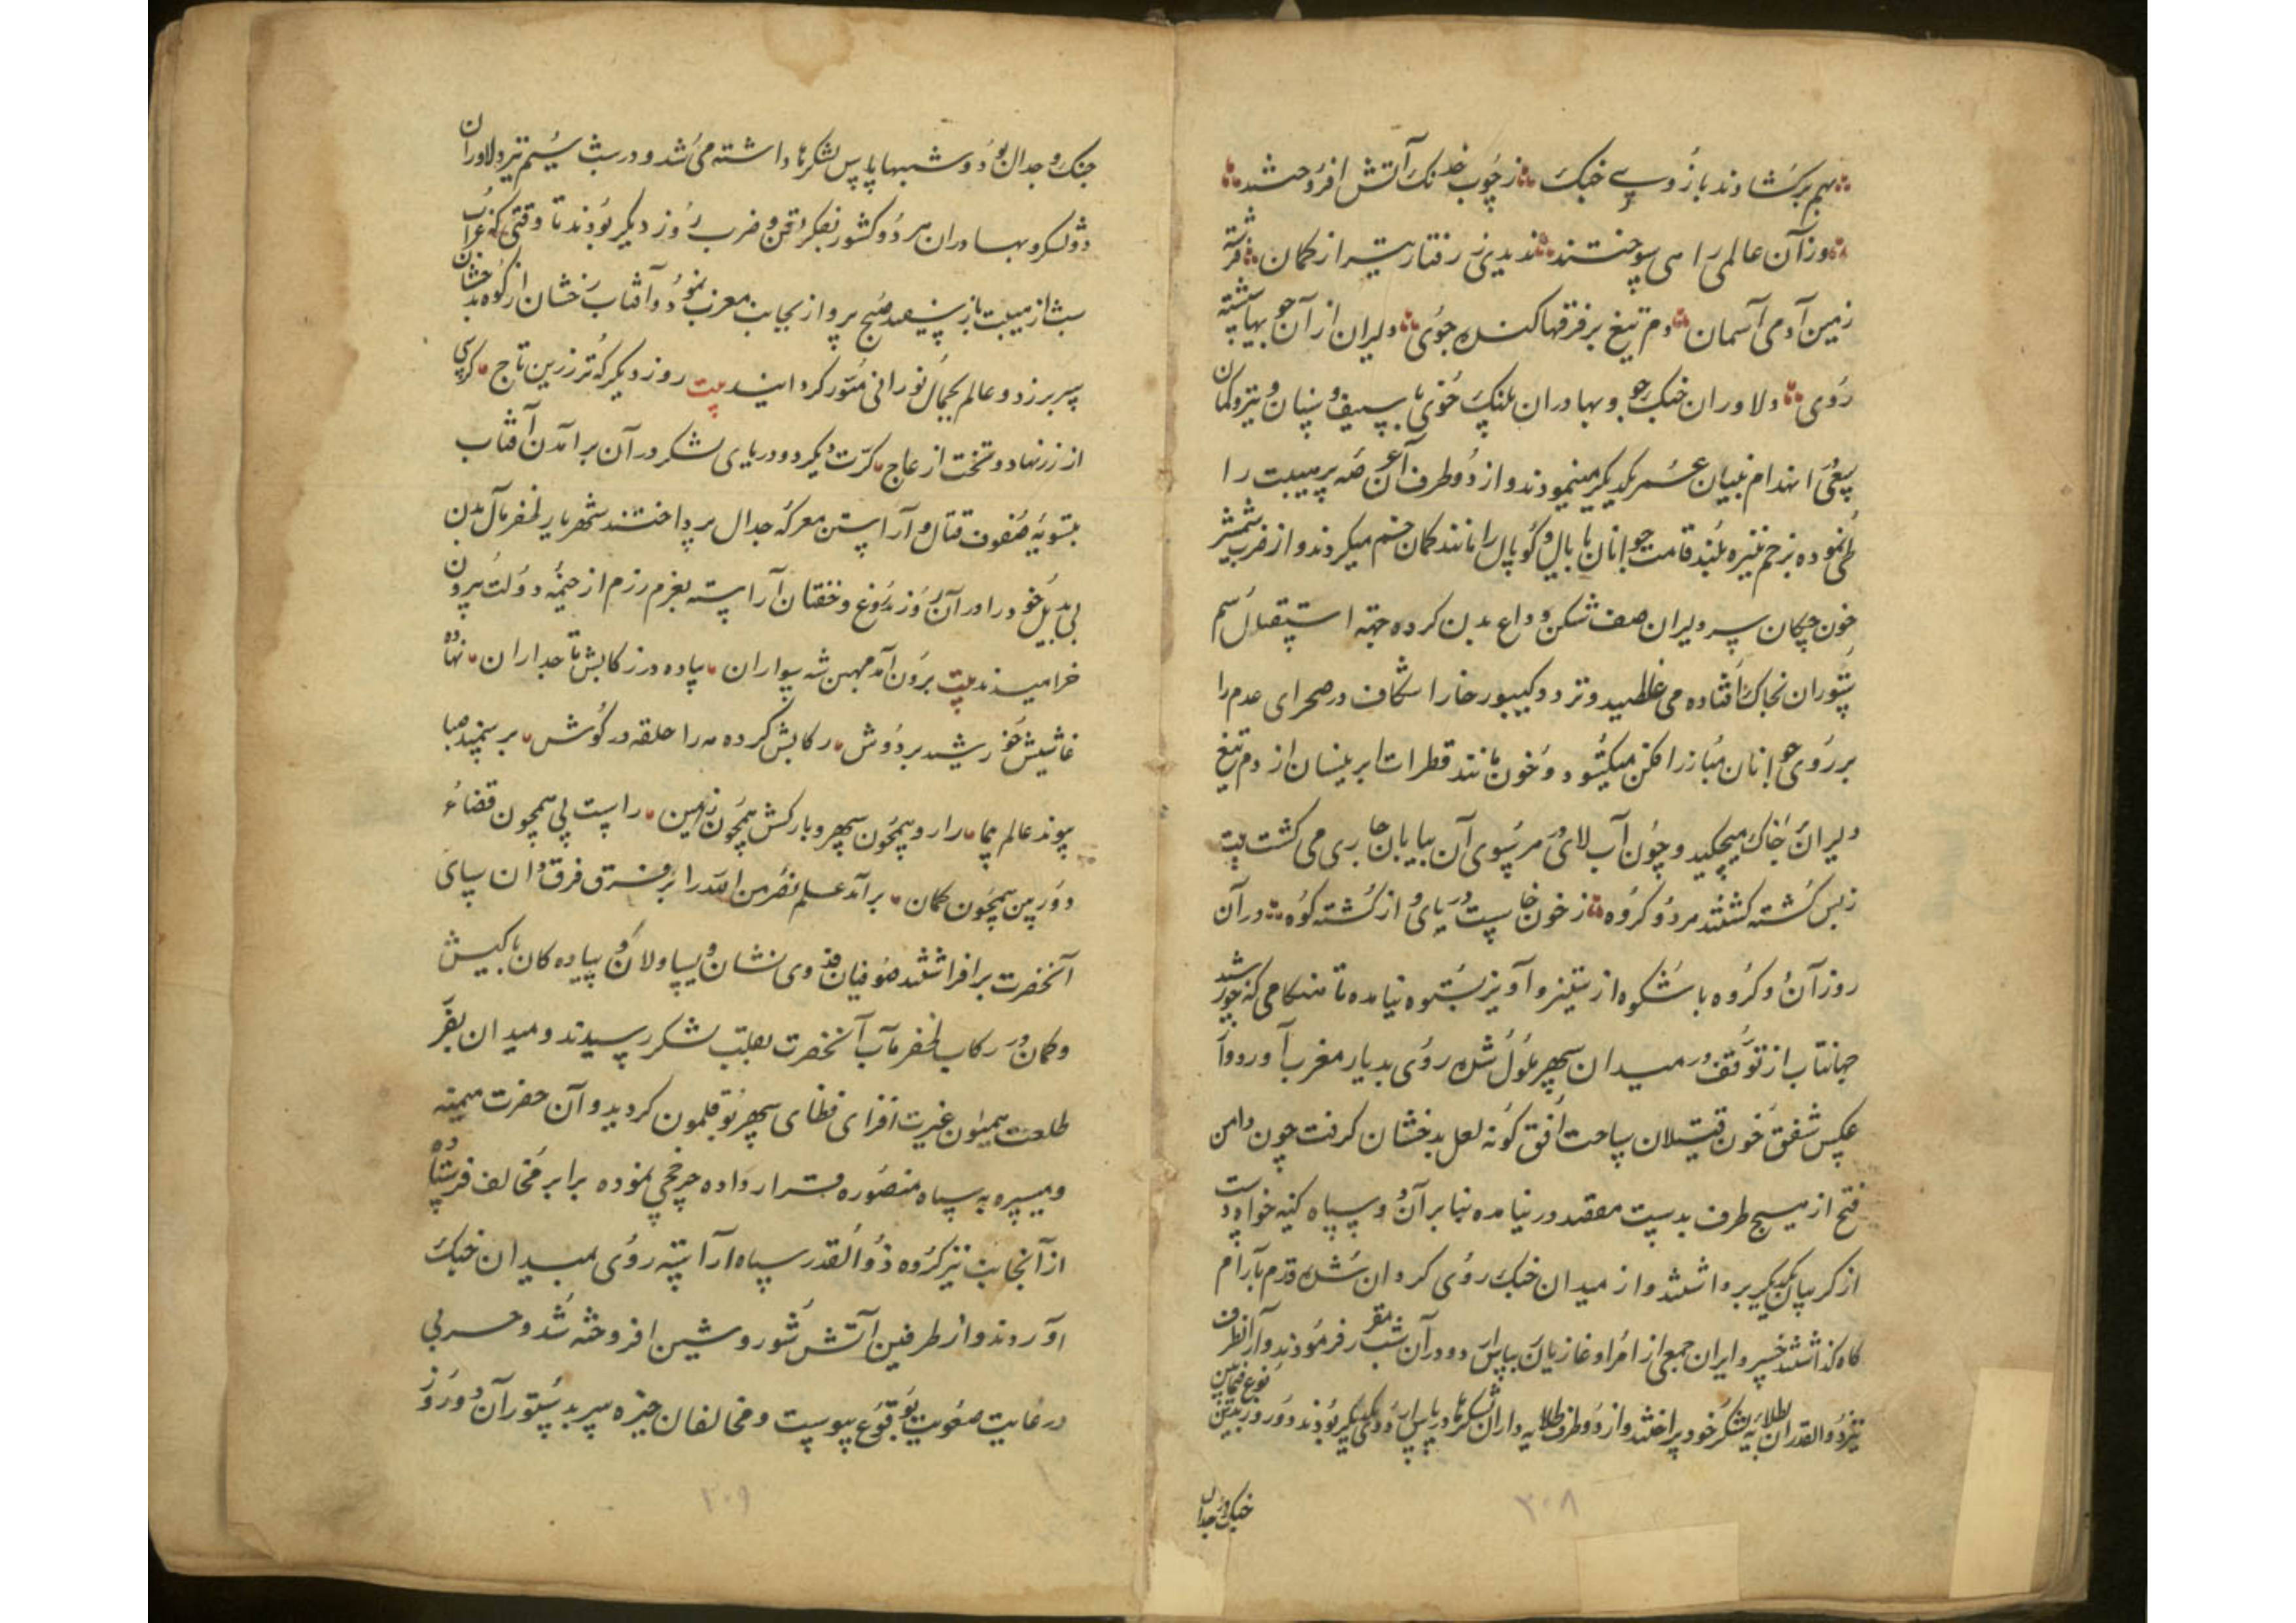 بهم برکشادند بازوی جنک ز چوب خدنک آتش افروختند
وزآن عالمی را همی سوختند ندیدی ز رفتار تیر از کمان فرشته
زمین آدمی آسمان دم تیغ بر فرقها کنده جوی دلیران از آن جو بها شسته
روی ودلاوران جنک جو وبهادران پلنک خوی با سیف وسنان وتیر وکمان
بسعی انهدام بنیان عمر یکدیکر مینمودند واز دو طرف آن عرصه پرهیبت را
طی نموده بزخم نیزه بلند قامت جوانان با بال وکوپال را مانند کمان خم میکردند واز ضرب شمشیر
خون چکان سر دلیران صف شکن وداع بدن کرده جهة استقبال سم
ستوران بخاک افتاده می غلطید وتردد کیبور خارا شکاف در صحرای عدم را
بر روی جوانان مبارز افکن میکشود وخون مانند قطرات ابر نیسان از دم تیغ
دلیران بخاک میچکید وچون آب لای در هر سوی آن بیابان جاری می کشت بیت
زبس کشته کشتند هر دو کروه ز خون خاست دریای واز کشته کوه درآن
روز آن دو کروه با شکوه از ستیز وآویز بستوه نیامده تا هنکامی که خورشید
جهانتاب از توقف در میدان سپهر ملول شده روی بدیار مغرب آورد واز
عکس شفق خون قتیلان ساحت افق کونه لعل بدخشان کرفت چون دامن
فتح از هیچ طرف بدست مقصد در نیامده بنابر آن دو سپاه کینه خواه دست
از کریبان یکدیکر برداشتند واز میدان جنک روی کردان شده قدم بآرام
کاه کذاشتند خسرو ایران جمعی از امرا وغازیان بپاس در آن شب مقرر فرمودند واز آنطرف
نیز ذوالقدران بطلایه لشکر خود پرداختند واز دو طرف طلایه داران لشکرها در پاس یکدیکر بودند دو روز بدین نوع فیمابین
جنک وجدال
۳۰۸
جنک وجدال بود وشبها پاس لشکرها داشته می شد ودر شب سیم نیز دلاوران
دو لشکر وبهادران هر دو کشور بفکر وضرب روز دیکر بودند تا وقتی که غراب
شب از هیبت باز سفید صبح پرواز بجانب مغرب نمود وآفتاب رخشان از کوه بدخشان
سر بر زد وعالم بجمال نورانی منور کردانید بیت روز دیکر که ترز زرین تاج کرسی
از زر نهاد وتخت از عاج کرت دیکر دو دریای لشکر در آن برآمدن آفتاب
بتسویه صفوف قتال وآراستن معرکه جدال پرداختند شهریار ظفر مآل بدن
بی بدیل خود را در آن روز بدروغ وخفتان آراسته بعزم رزم از خیمه دولت بیرون
خرامیدند بیت برون آمد مهین شه سواران پیاده در رکابش تاجداران نهاده
غاشیش خورشید بر دوش رکابش کرده مه را حلقه در کوش بر سمند صبا
پیوند عالم پیما راه رو همچون سپهر وبارکش همچون زمین راست پی همچون قضاء
ودور بین همچون کمان برآمد علم نصر من الله را بر فرق فرقدان سای
آنحضرت برافراشتند صوفیان فدوی نشان ویساولان وپیاده کان با کیش
وکمان در رکاب ظفر مآب آنحضرت بقلب لشکر رسیدند ومیدان بفر
طلعت همیون غیرت افزای فضای سپهر بوقلمون کردید وآن حضرت میمنه
ومیسره به سپاه منصوره قرار داده چرخچی نموده برابر مخالف فرستاده
از آنجانب نیز کروه ذوالقدر سپاه آراسته روی بمیدان جنک
آوردند واز طرفین آتش شور وشین افروخته شد وحربی
در غایت صعوبت بوقوع پیوست ومخالفان خیره سر بدستور آن دو روز
۳۰۹